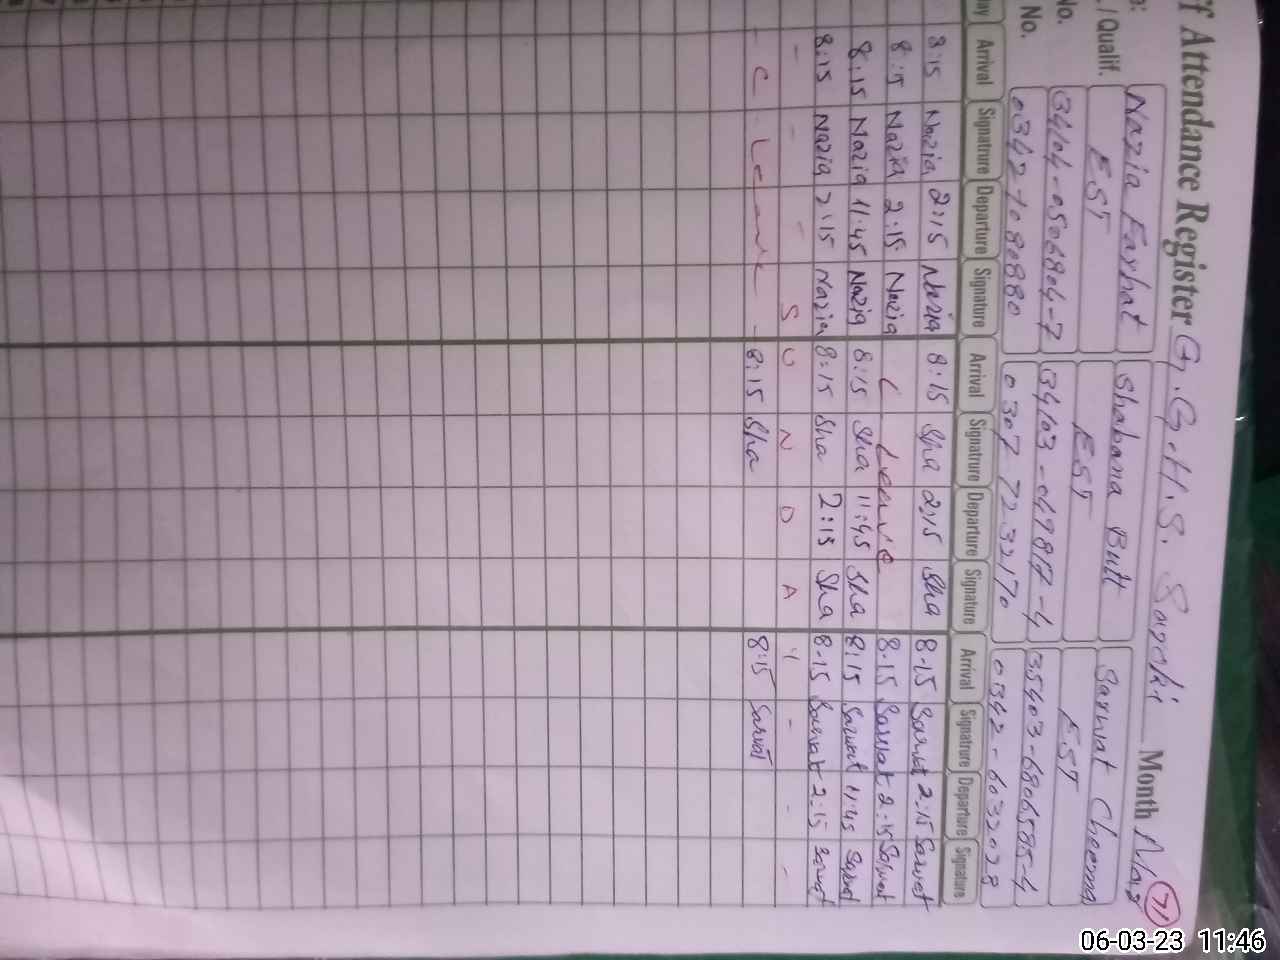 ff Attendance Register G.G.H.S. Saroki Month Mar 71
/ Qualif. Nazia Farhat Shabana Butt Sarwat Cheema
EST EST EST
No. 34104-0506804-7 34103-049817-4 35403-6806585-4
No. 0342 7080880 0307 7232170 0342-6032028
ay Arrival Signatrure Departure Signature Arrival Signatrure Departure Signature Arrival Signatrure Departure Signature
8:15 Nazia 2:15 Nazia 8:15 Sha 2:15 Sha 8.15 Sarwat 2:15 Sarwat
8:15 Nazia 2:15 Nazia C Leave 8.15 Sarwat 2:15 Sarwat
8:15 Nazia 11:45 Nazia 8:15 Sha 11:45 Sha 8:15 Sarwat 11:45 Sarwat
8:15 Nazia 2:15 Nazia 8:15 Sha 2:15 Sha 8.15 Sarwat 2:15 Sarwat
- - - S U N D A Y - - -
- C. Leave - 8:15 Sha 8:15 Sarwat
06-03-23 11:46